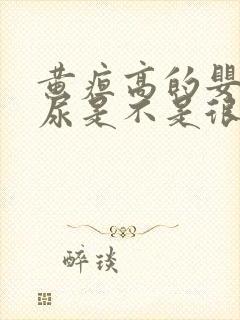 黄疸高的婴
尿是不是很
醉琰